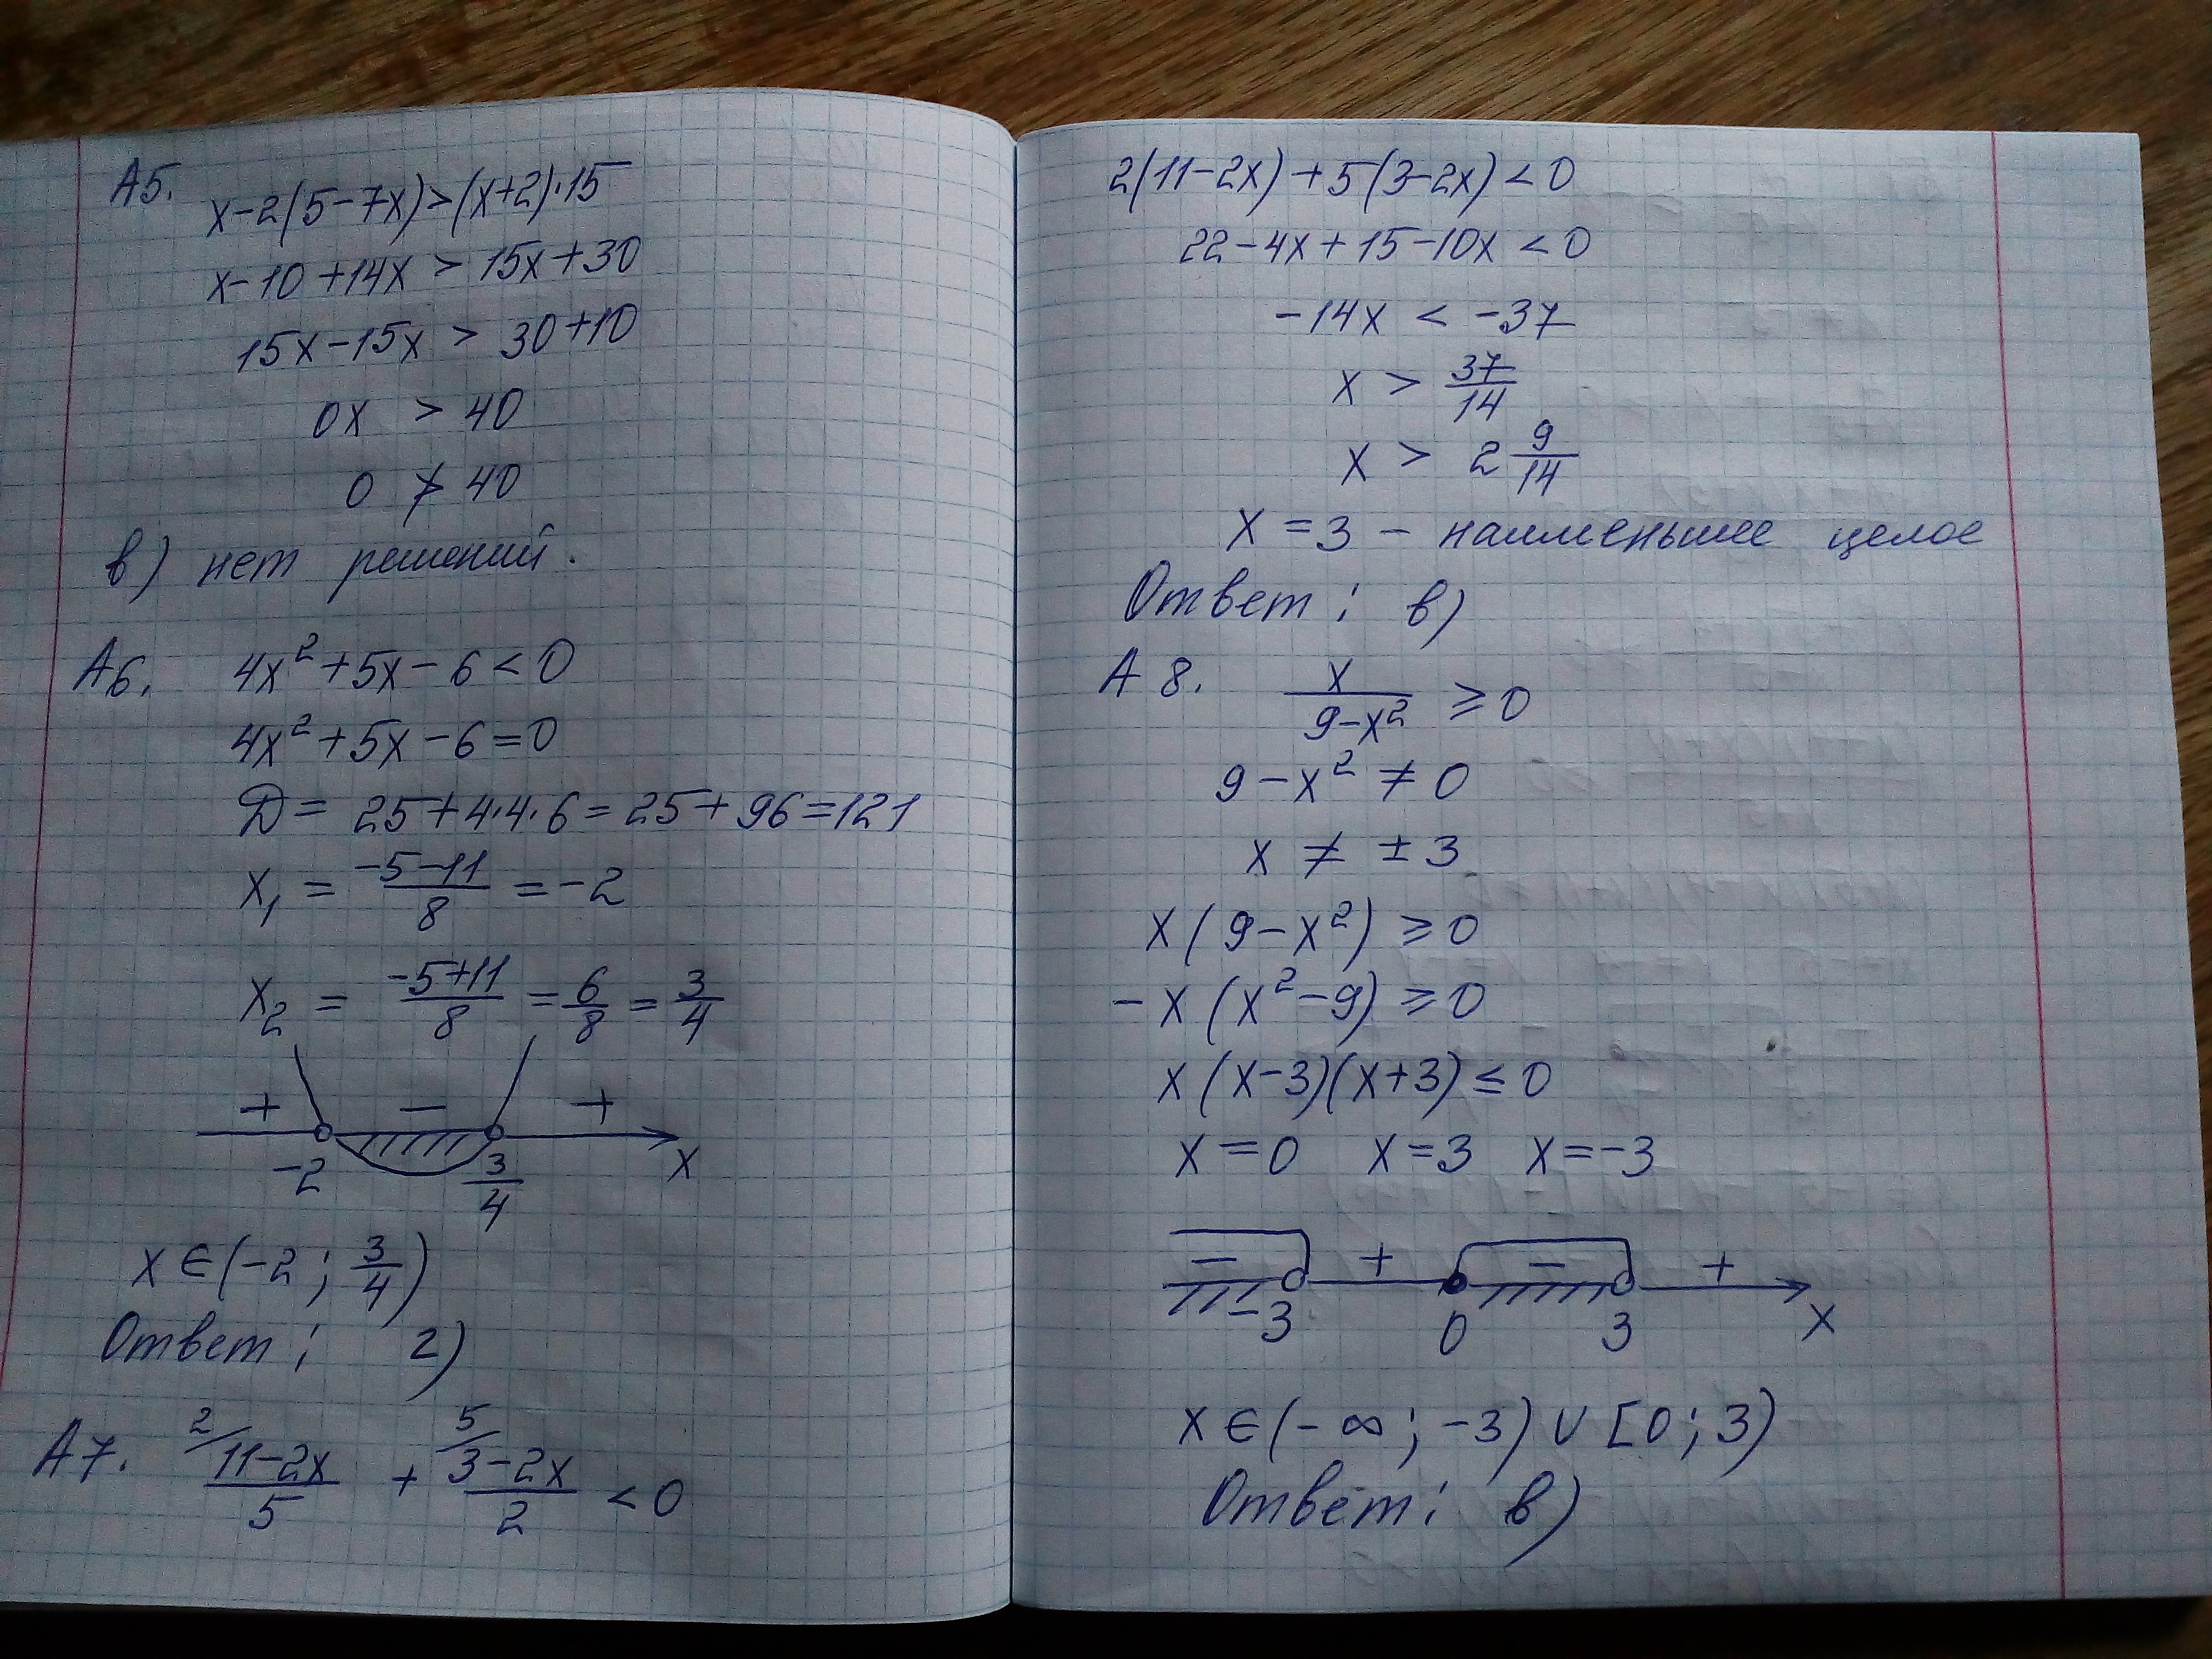 А5. x-2(5-7x)>(x+2)·15
x-10+14x > 15x+30
15x-15x > 30+10
0x > 40
0 ≯ 40
в) нет решений.
А6. 4x²+5x-6<0
4x²+5x-6=0
Д= 25+4·4·6=25+96=121
x₁ = (-5-11)/8 = -2
x₂ = (-5+11)/8 = 6/8 = 3/4
+ - +
-2 3/4 x
x∈(-2; 3/4)
Ответ: г)
А7. ²/(11-2x)/5 + ⁵/(3-2x)/2 <0
2(11-2x)+5(3-2x)<0
22-4x+15-10x<0
-14x < -37
x > 37/14
x > 2 9/14
x=3 - наименьшее целое
Ответ: в)
А8. x/(9-x²) ⩾0
9-x² ≠ 0
x ≠ ±3
x(9-x²) ⩾0
-x(x²-9) ⩾0
x(x-3)(x+3) ≤0
x=0 x=3 x=-3
- + - +
-3 0 3 x
x∈(-∞; -3)∪[0; 3)
Ответ: в)